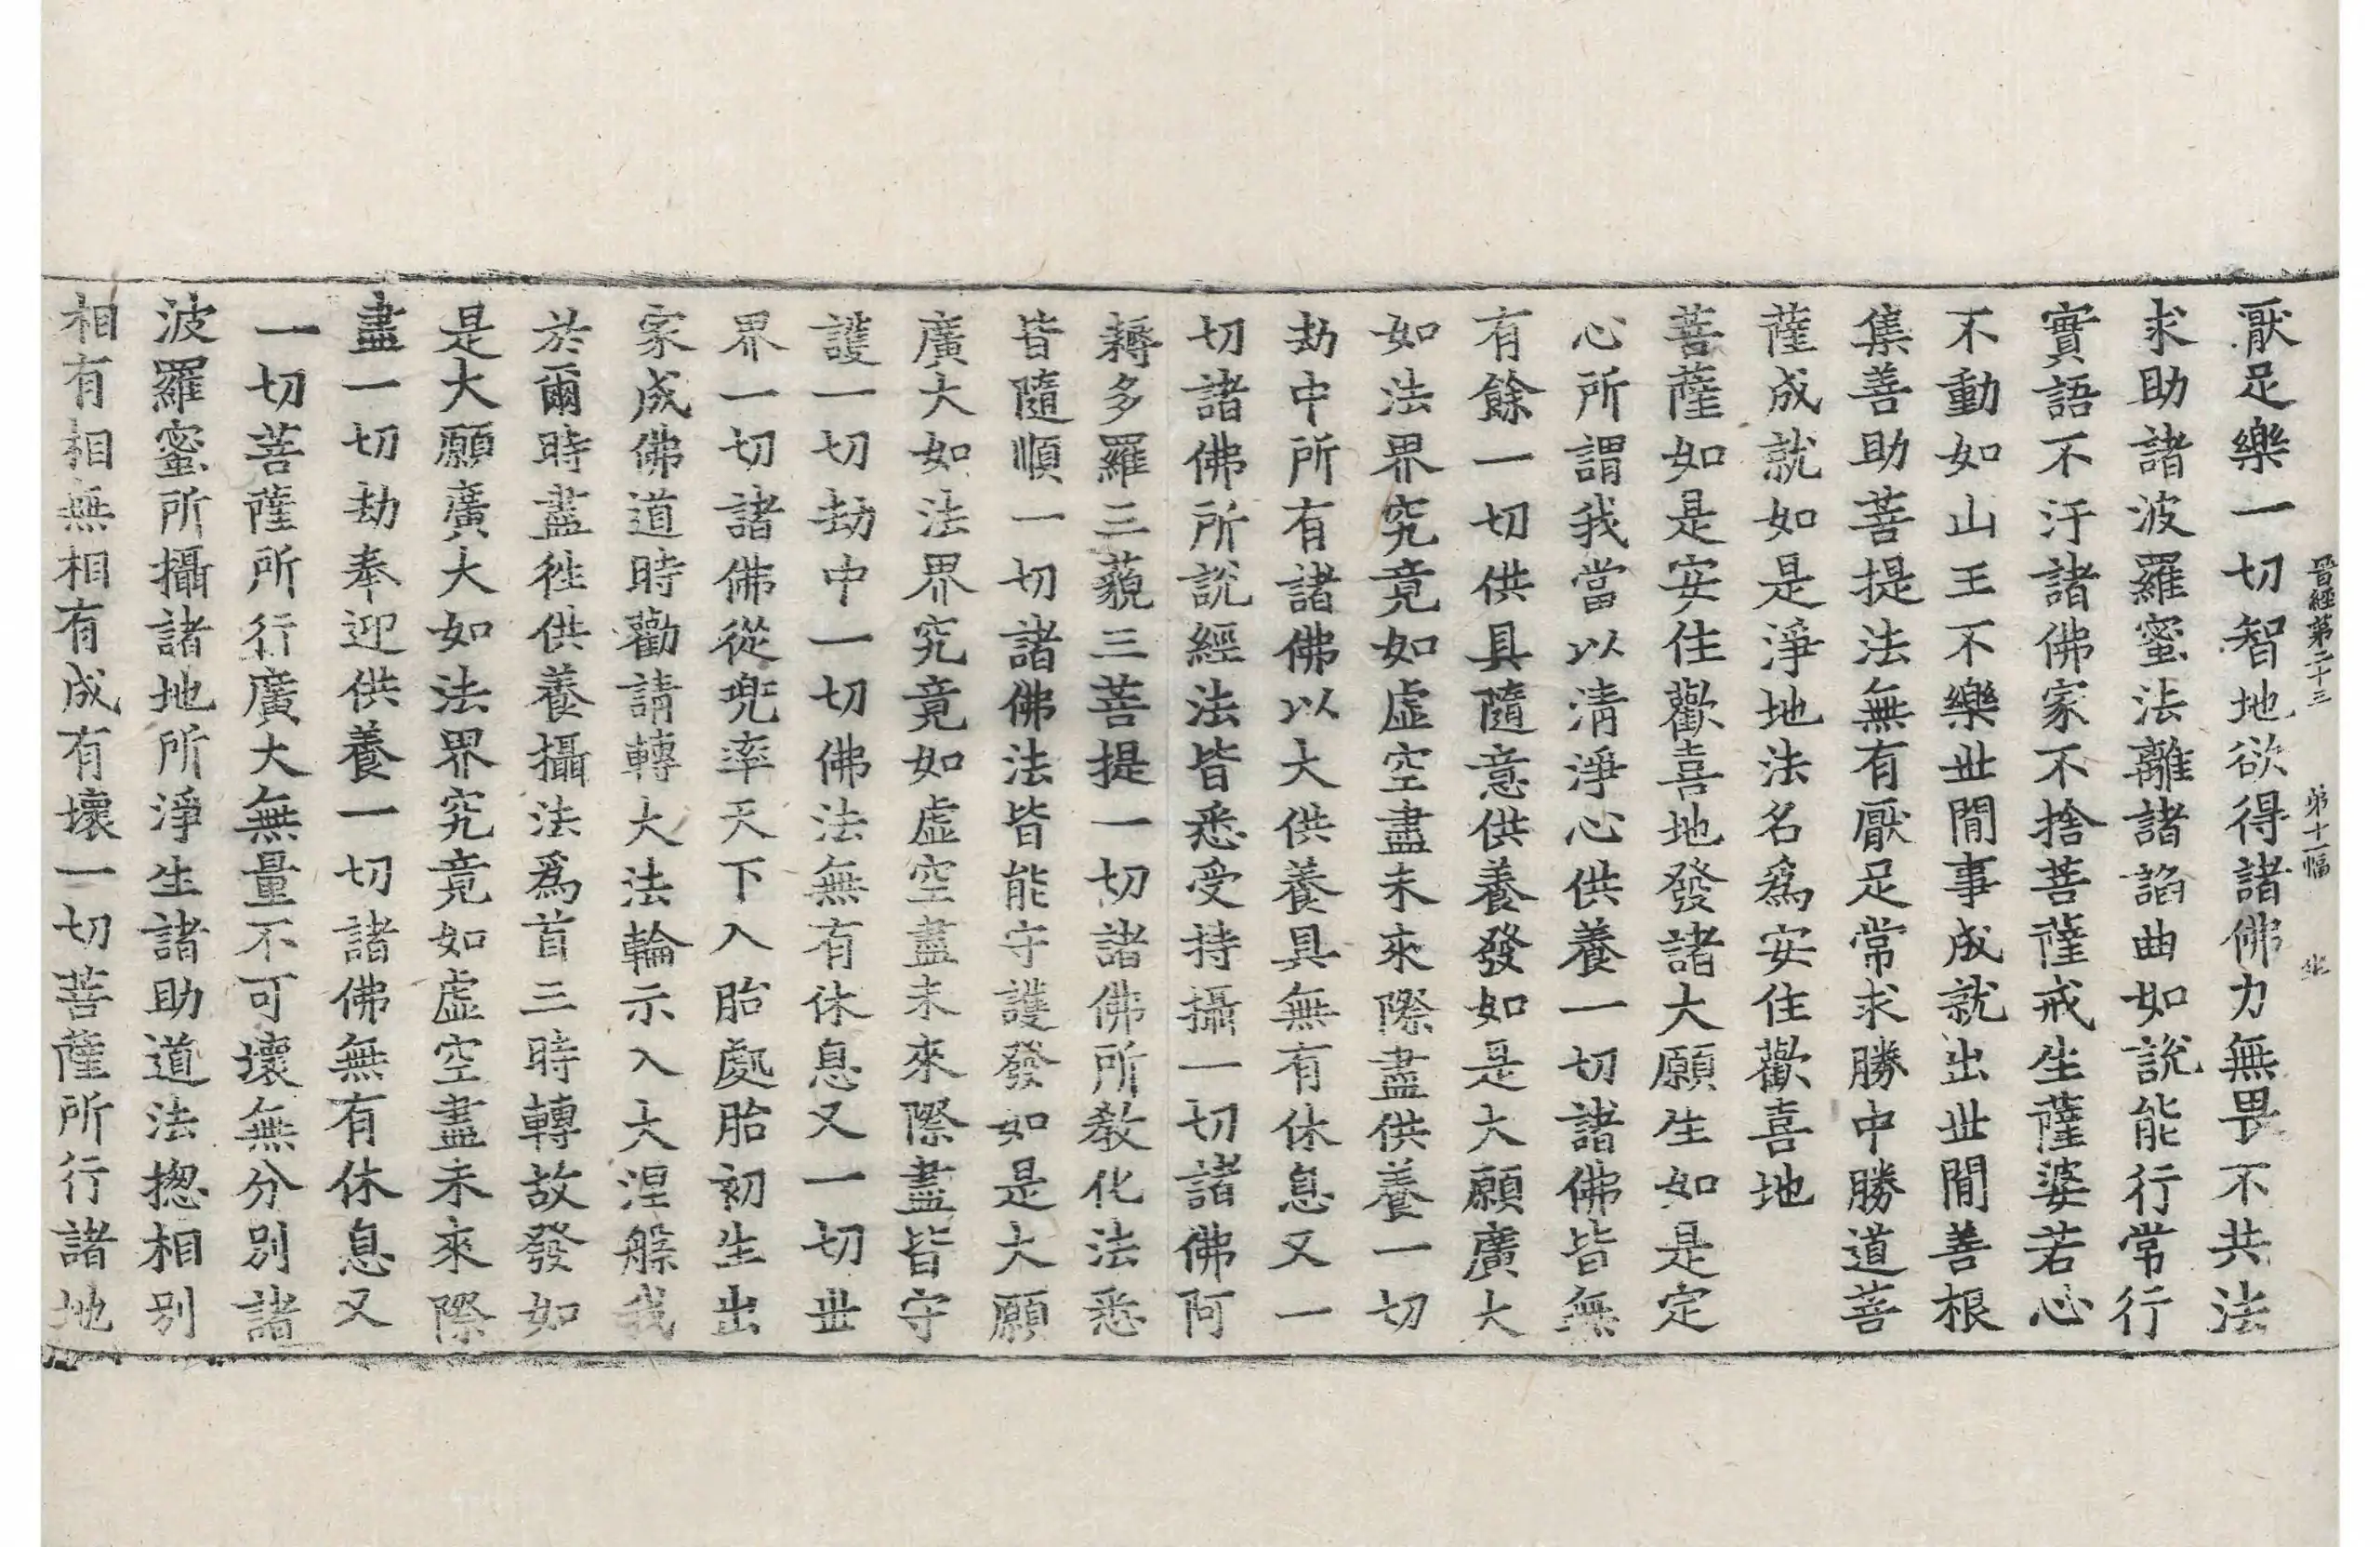 晉經第二十三 第十一幅 坐
厭足樂一切智地欲得諸佛力無畏不共法
求助諸波羅蜜法離諸諂曲如說能行常行
實語不汙諸佛家不捨菩薩戒生薩婆若心
不動如山王不樂丗閒事成就出丗閒善根
集善助菩提法無有厭足常求勝中勝道菩
薩成就如是淨地法名爲安住歡喜地
菩薩如是安住歡喜地發諸大願生如是定
心所謂我當以清淨心供養一切諸佛皆無
有餘一切供具隨意供養發如是大願廣大
如法界究竟如虛空盡未來際盡供養一切
劫中所有諸佛以大供養具無有休息又一
切諸佛所說經法皆悉受持攝一切諸佛阿
耨多羅三藐三菩提一切諸佛所教化法悉
皆隨順一切諸佛法皆能守護發如是大願
廣大如法界究竟如虛空盡未來際盡皆守
護一切劫中一切佛法無有休息又一切丗
界一切諸佛從兜率天下入胎處胎初生出
家成佛道時勸請轉大法輪示入大涅槃我
於爾時盡徃供養攝法爲首三時轉故發如
是大願廣大如法界究竟如虛空盡未來際
盡一切劫奉迎供養一切諸佛無有休息又
一切菩薩所行廣大無量不可壞無分別諸
波羅蜜所攝諸地所淨生諸助道法揔相別
相有相無相有成有壞一切菩薩所行諸地